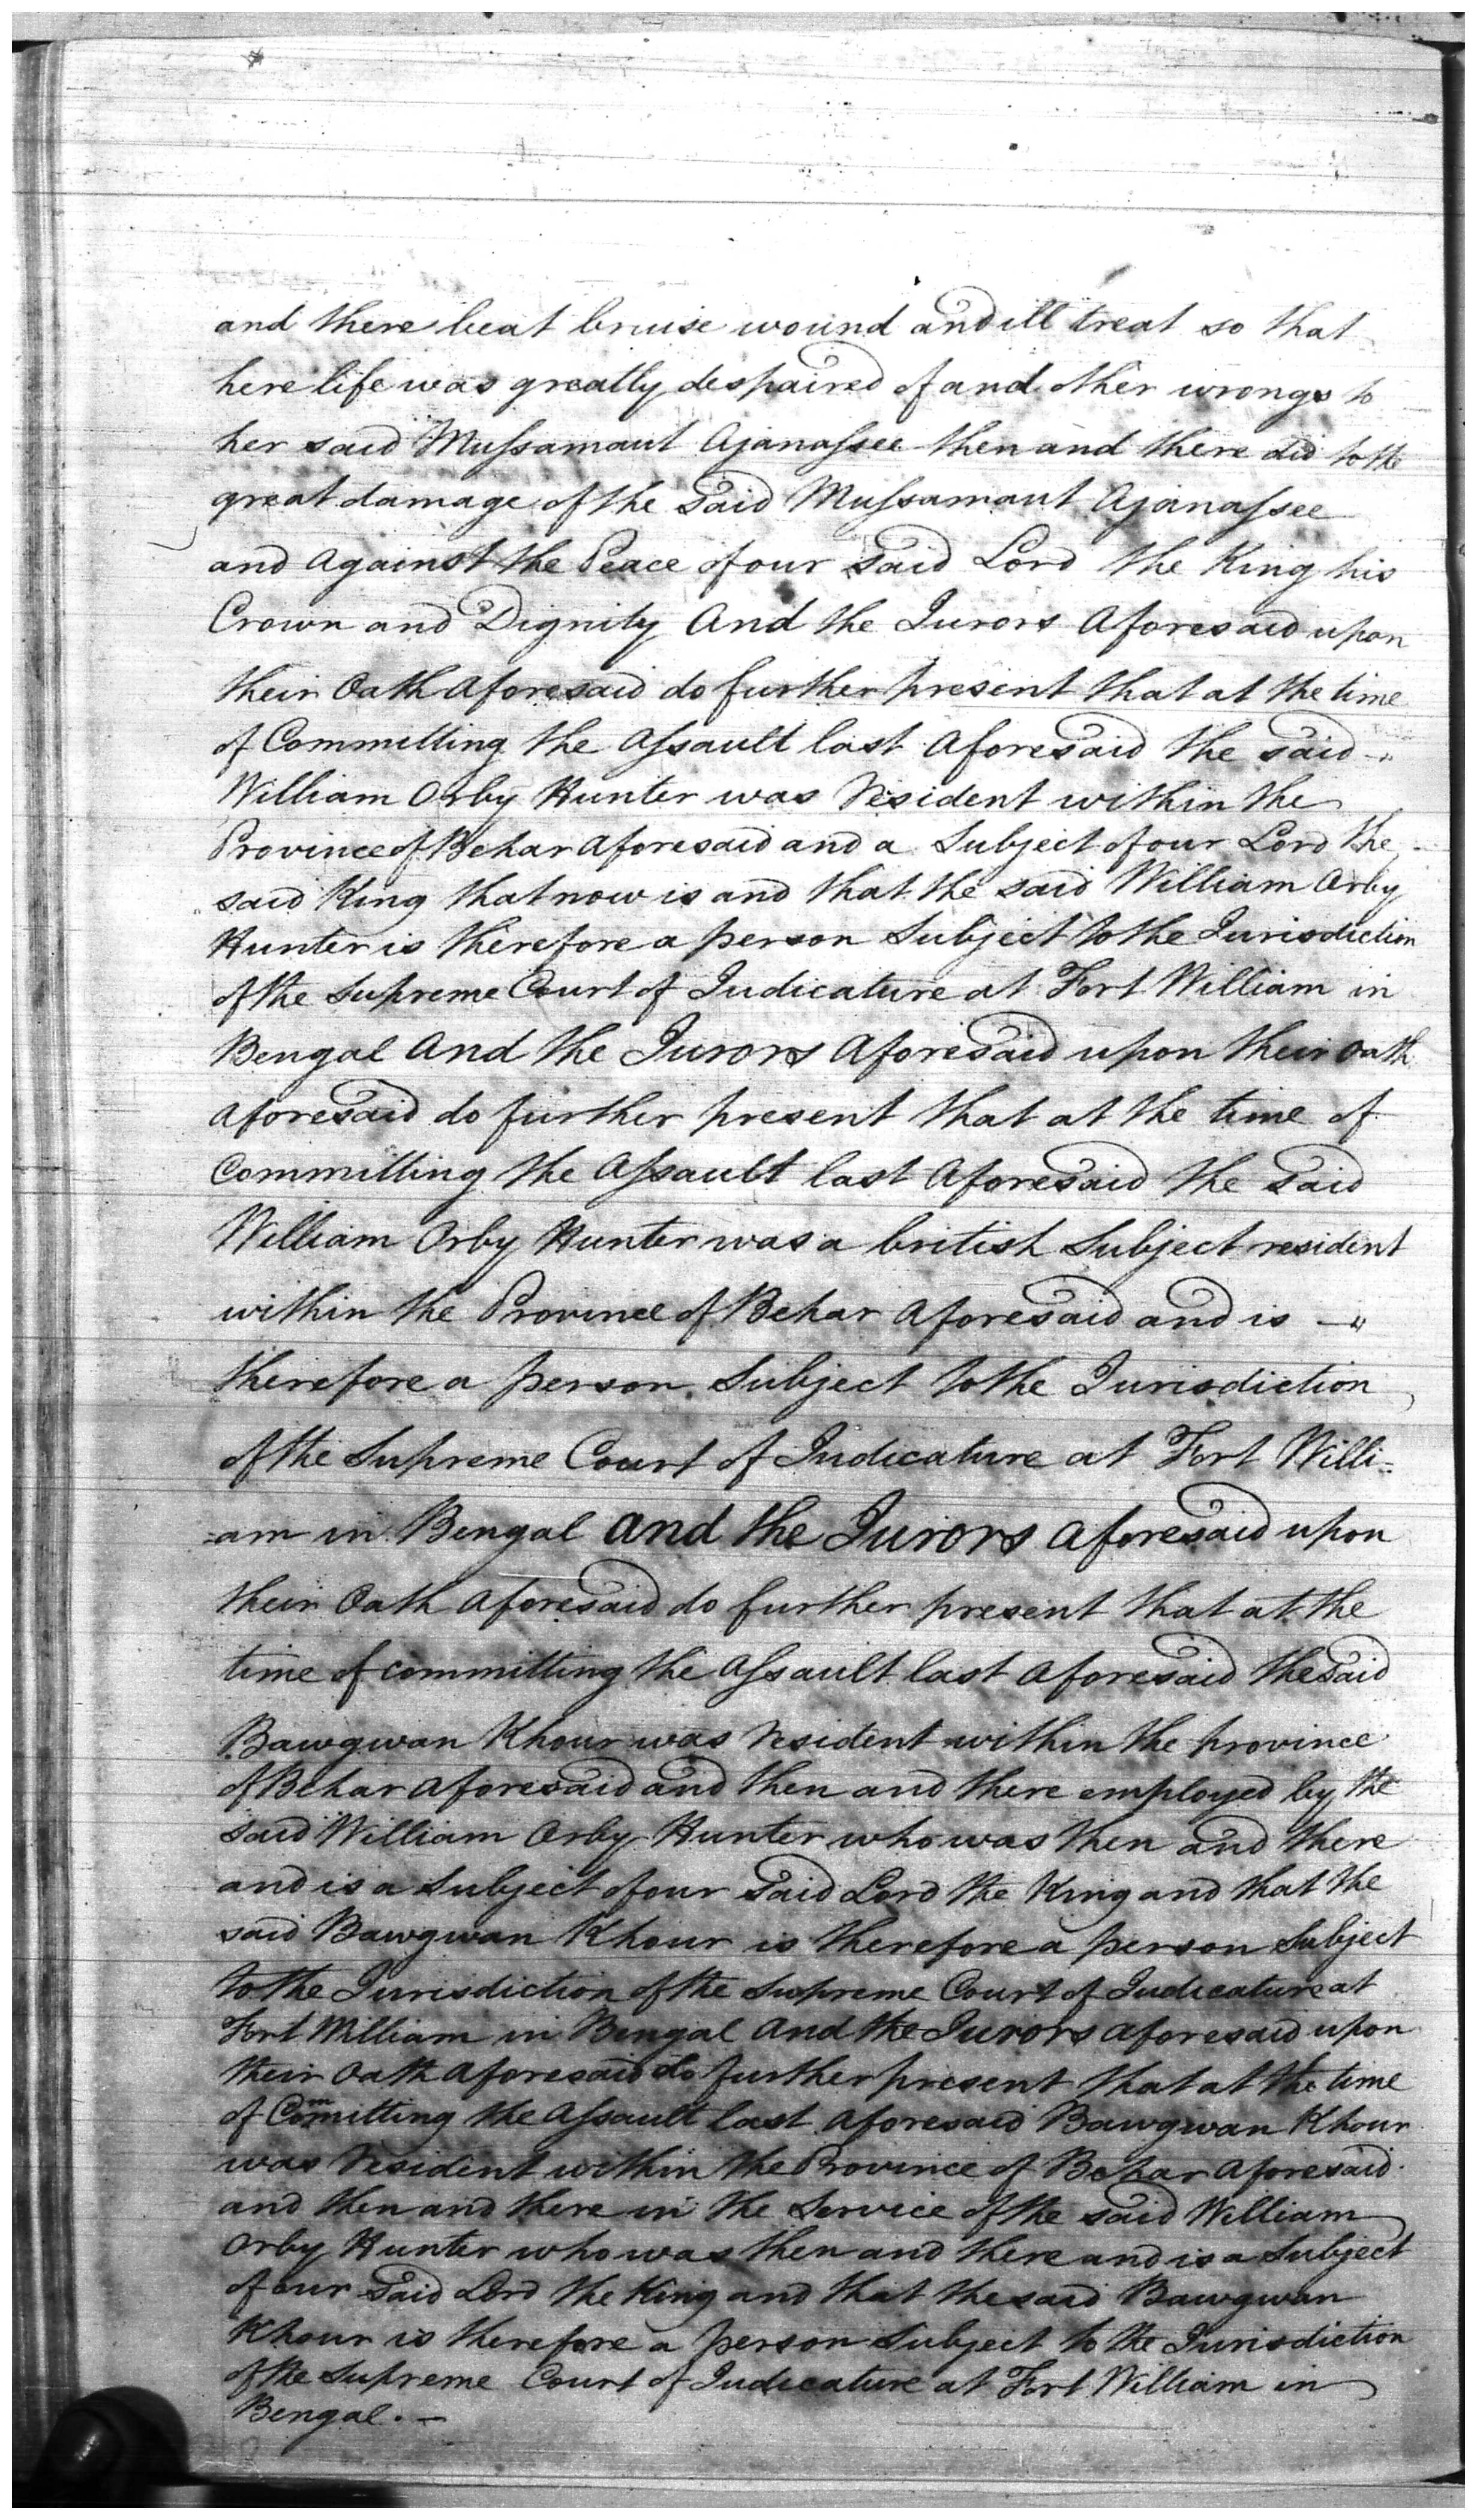 and there beat bruise wound and ill treat so that
here life was greatly despaired of and other wrongs to
her said Mussamaut Ajanassee then and there did to the
great damage of the said Mussamaut Ajanassee
and Against the Peace of our said Lord the King his
Crown and Dignity And the Jurors Aforesaid upon
their Oath Aforesaid do further present that at the time
of Committing the Assault last Aforesaid the said
William Orby Hunter was resident within the
Province of Behar Aforesaid and a Subject of our Lord the
said King that now is and that the said William Orby
Hunter is therefore a person Subject to the Jurisdiction
of the Supreme Court of Judicature at Fort William in
Bengal And the Jurors Aforesaid upon their Oath
Aforesaid do further present that at the time of
Committing the Assault last Aforesaid the said
William Orby Hunter was a british Subject resident
within the Province of Behar Aforesaid and is
therefore a person Subject to the Jurisdiction
of the Supreme Court of Judicature at Fort Willi=
=am in Bengal and the Jurors aforesaid upon
their Oath Aforesaid do further present that at the
time of committing the Assault last Aforesaid the said
Bawgwan Khour was resident within the province
of Behar Aforesaid and then and there employed by the
said William Orby Hunter who was then and there
and is a Subject of our said Lord the King and that the
said Bawgwan Khour is therefore a person Subject
to the Jurisdiction of the Supreme Court of Judicature at
Fort William in Bengal And the Jurors aforesaid upon
their Oath Aforesaid do further present that at the time
of Committing the Assault last Aforesaid Bawgwan Khour
was resident within the Province of Behar Aforesaid
and then and there in the Service of the said William
Orby Hunter who was then and there and is a Subject
of our said Lord the King and that the said Bawgwan
Khour is therefore a person Subject to the Jurisdiction
of the Supreme Court of Judicature at Fort William in
Bengal. —